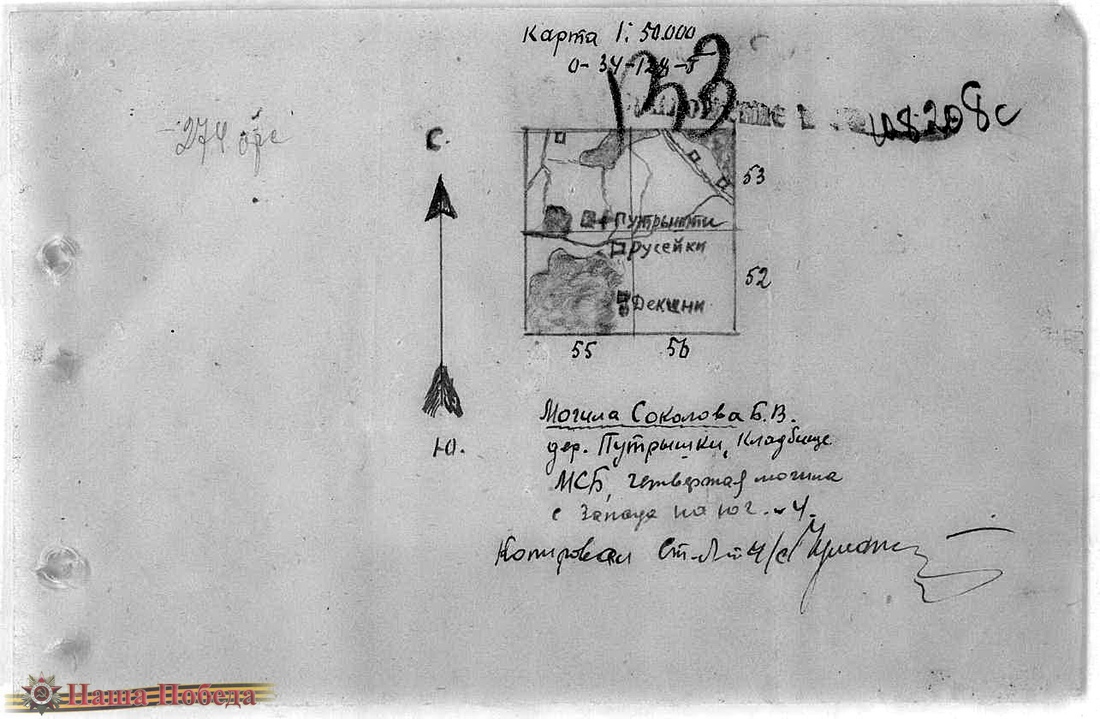 Карта 1:50.000
0-34-128-Б
133
108208с
274
С.
53
Путрышки
Русейки
52
Декшни
55 56
Могила Соколова Б.В.
дер. Путрышки, Кладбище
МСБ, четвертая могила
с Запада на юг. 4.
Ю.
Копировал Ст. Л-т
Наша Победа